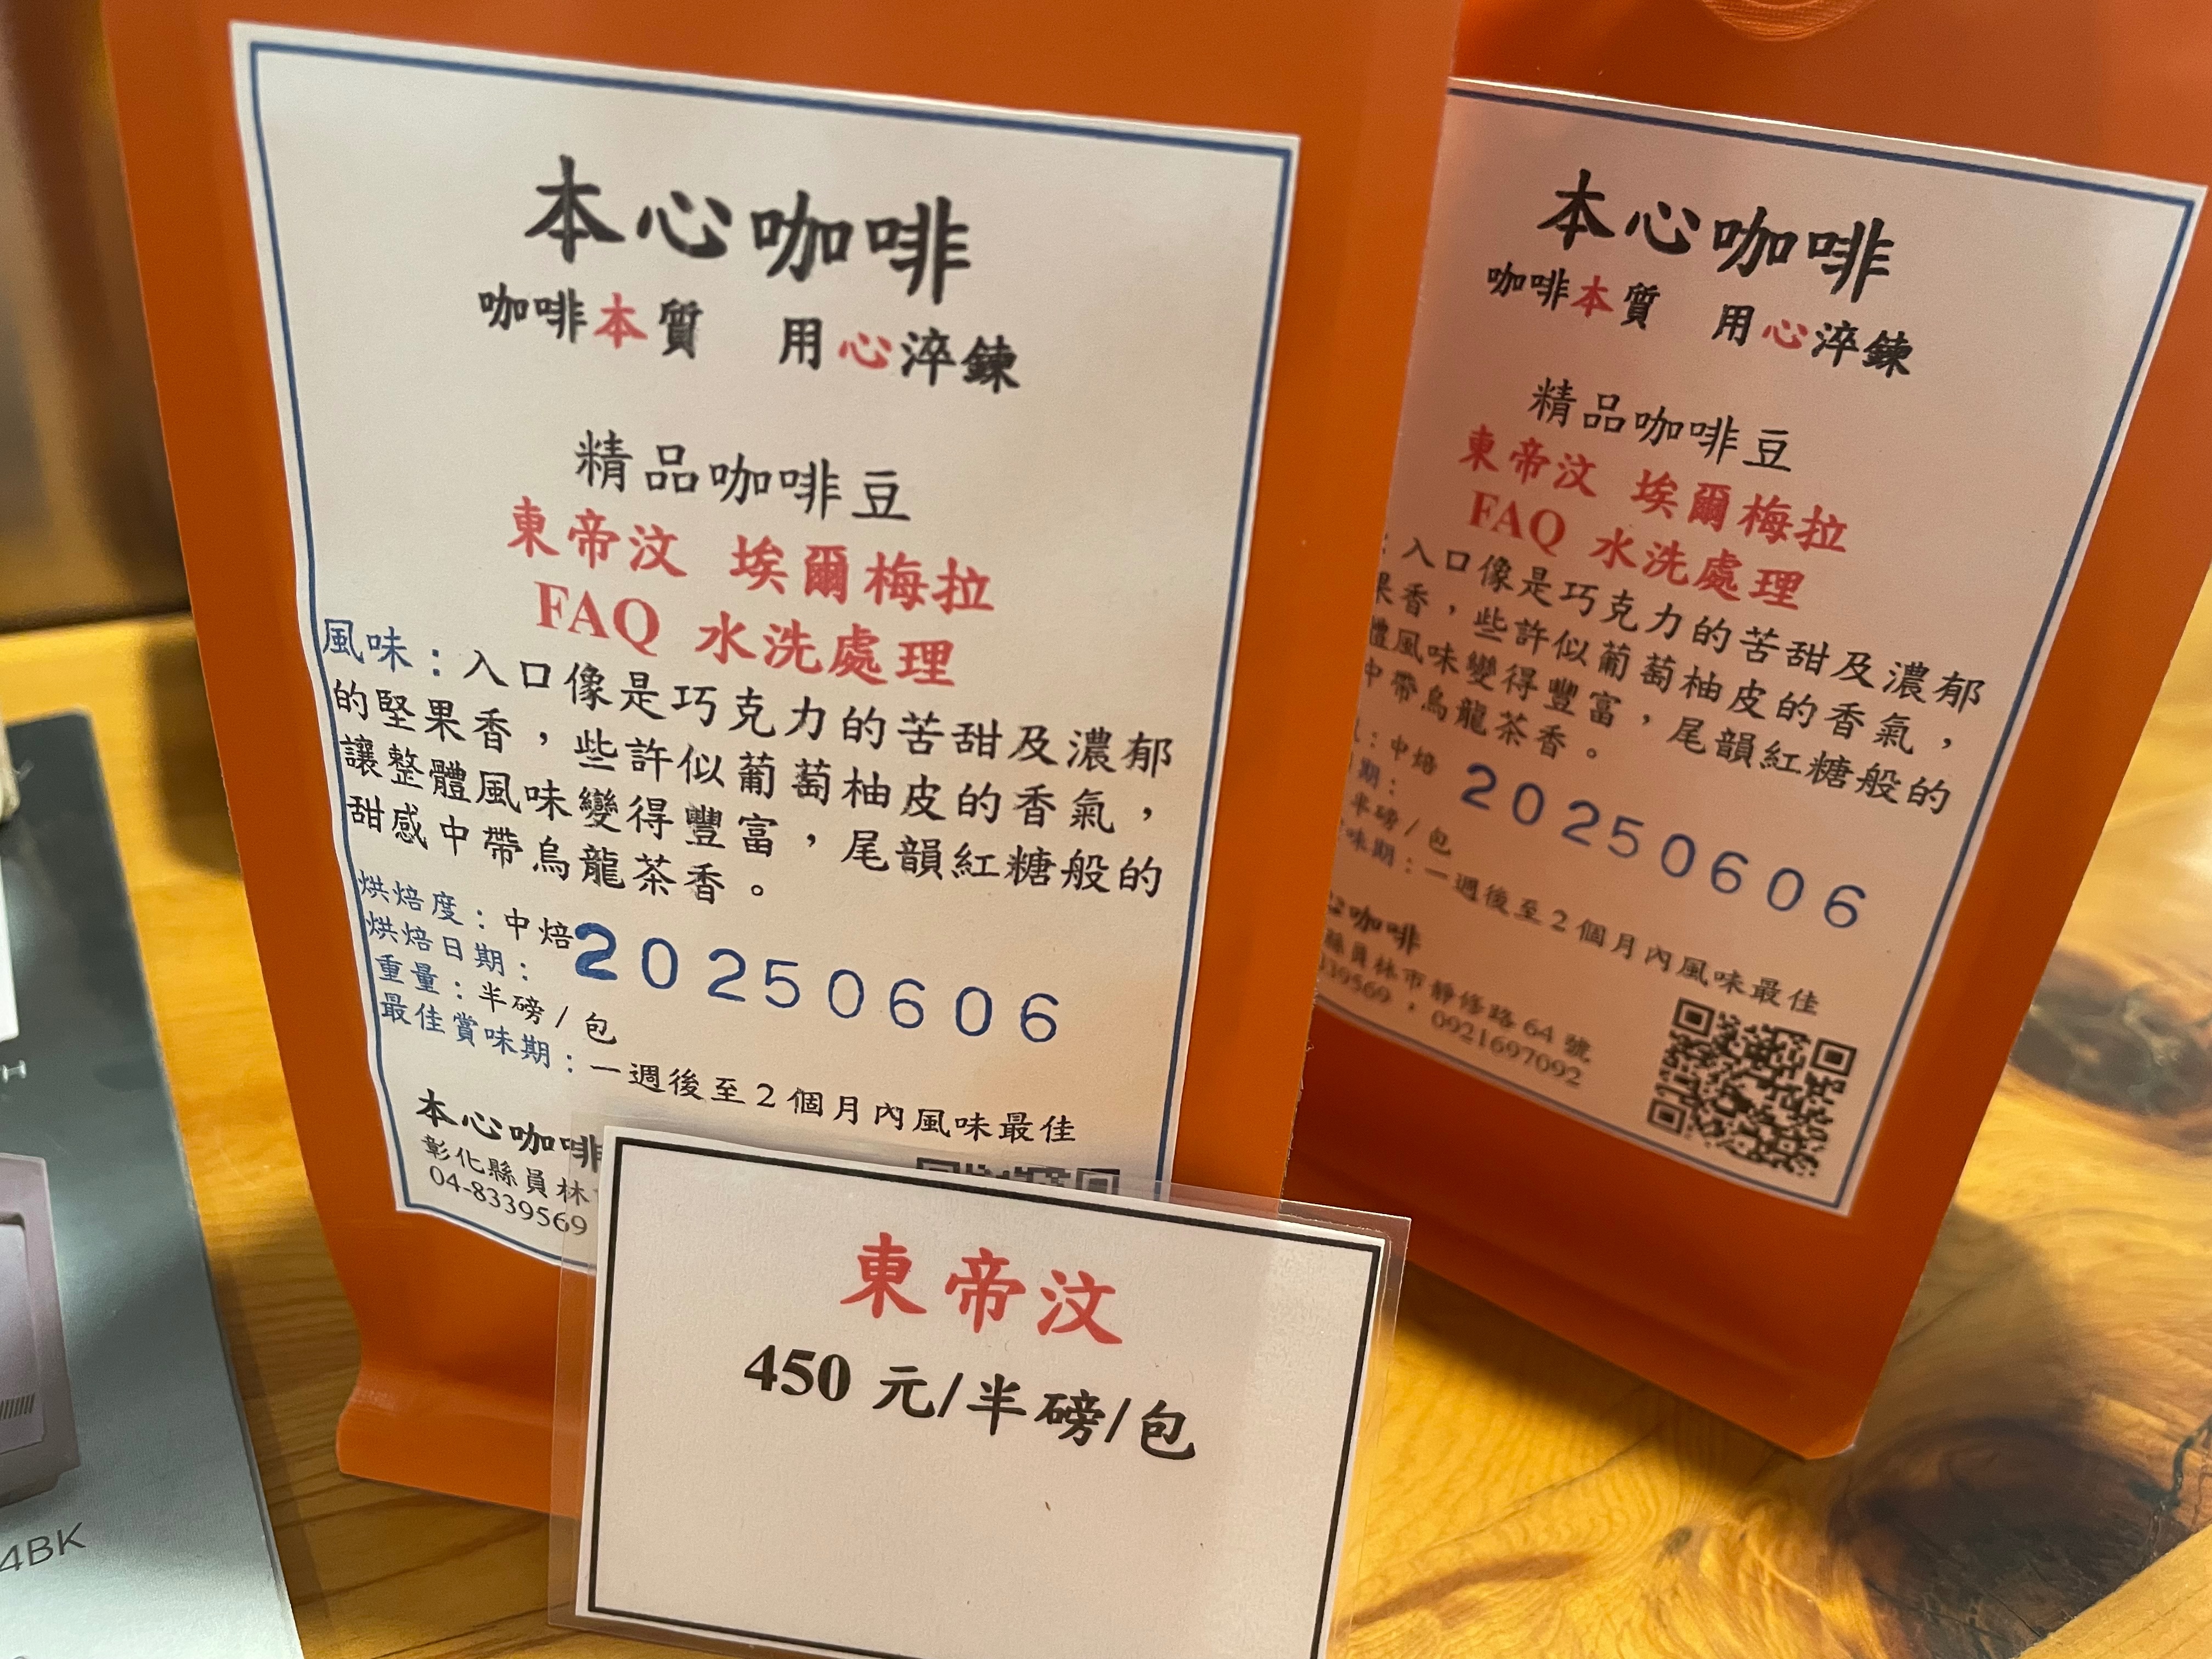 本心咖啡
咖啡本質 用心淬鍊
精品咖啡豆
東帝汶 埃爾梅拉
FAQ 水洗處理
風味：入口像是巧克力的苦甜及濃郁
的堅果香，些許似葡萄柚皮的香氣，
讓整體風味變得豐富，尾韻紅糖般的
甜感中帶烏龍茶香。
烘焙度：中焙
烘焙日期： 20250606
重量：半磅/包
最佳賞味期：一週後至2個月內風味最佳
本心咖啡
彰化縣員林
04-8339569
東帝汶
450 元/半磅/包
本心咖啡
咖啡本質 用心淬鍊
精品咖啡豆
東帝汶 埃爾梅拉
FAQ 水洗處理
：入口像是巧克力的苦甜及濃郁
果香，些許似葡萄柚皮的香氣，
體風味變得豐富，尾韻紅糖般的
中帶烏龍茶香。
：中焙
期： 20250606
半磅/包
味期：一週後至2個月內風味最佳
咖啡
縣員林市靜修路 64 號
39569，0921697092
4BK